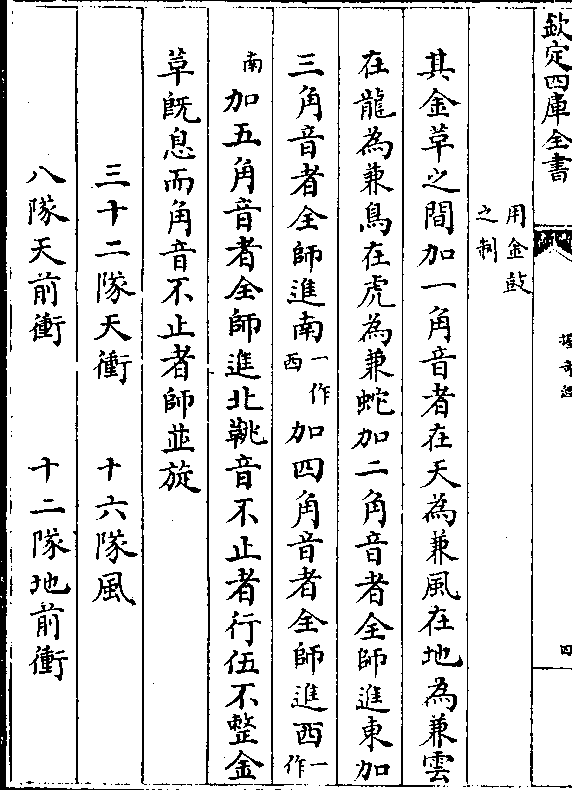 欽定四庫全書
握奇經
四
用金鼓
之制
其金草之間加一角音者在天為兼風在地為兼雲
在龍為兼鳥在虎為兼蛇加二角音者全師進東加
三角音者全師進南一作西加四角音者全師進西一作
南加五角音者全師進北鞉音不止者行伍不整金
草既息而角音不止者師並旋
三十二隊天衝 十六隊風
八隊天前衝 十二隊地前衝